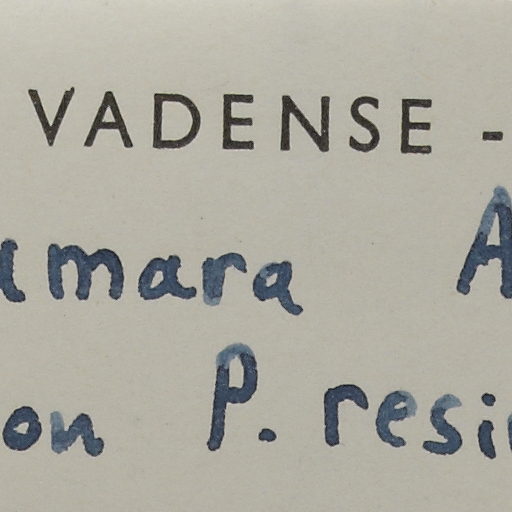 VADENSE -
amara A
on P. resi